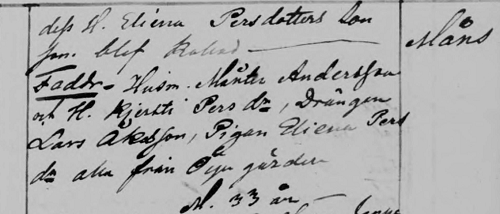 dess H. Eliena Persdotters Son
Jon. Olof
Måns
Faddr. Husm. Månter Andersson
och H. Kjersti Pers dr, Drängen
Lars Åkesson, Pigan Eliena Pers
dr alla från gården
M. 33 år